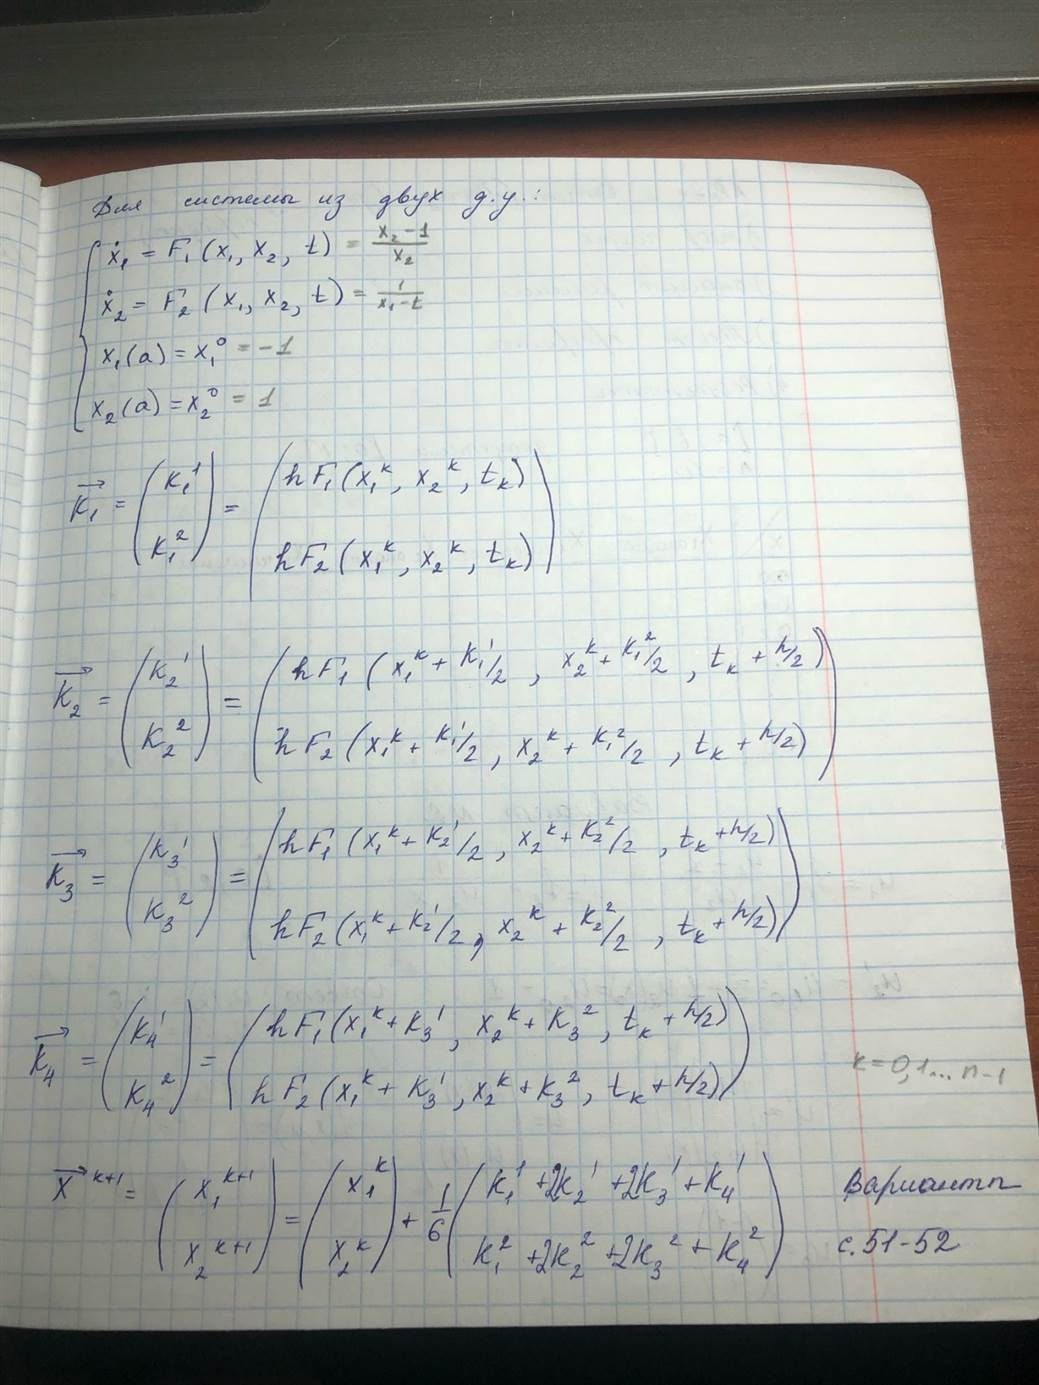 Для системы из двух д.у.:
ẋ₁ = F₁(x₁, x₂, t) = (x₂ - 1)/x₂
ẋ₂ = F₂(x₁, x₂, t) = 1/(x₁ - t)
x₁(a) = x₁⁰ = -1
x₂(a) = x₂⁰ = 1
K₁ = (K₁¹ K₁²) = (hF₁(x₁ᵏ, x₂ᵏ, tₖ)
hF₂(x₁ᵏ, x₂ᵏ, tₖ))
K₂ = (K₂¹ K₂²) = (hF₁(x₁ᵏ + K₁¹/2, x₂ᵏ + K₁²/2, tₖ + h/2)
hF₂(x₁ᵏ + K₁¹/2, x₂ᵏ + K₁²/2, tₖ + h/2))
K₃ = (K₃¹ K₃²) = (hF₁(x₁ᵏ + K₂¹/2, x₂ᵏ + K₂²/2, tₖ + h/2)
hF₂(x₁ᵏ + K₂¹/2, x₂ᵏ + K₂²/2, tₖ + h/2))
K₄ = (K₄¹ K₄²) = (hF₁(x₁ᵏ + K₃¹, x₂ᵏ + K₃², tₖ + h/2)
hF₂(x₁ᵏ + K₃¹, x₂ᵏ + K₃², tₖ + h/2))
k = 0,1...n-1
X ᵏ⁺¹ = (x₁ᵏ⁺¹ x₂ᵏ⁺¹) = (x₁ᵏ x₂ᵏ) + 1/6 (K₁¹ + 2K₂¹ + 2K₃¹ + K₄¹
K₁² + 2K₂² + 2K₃² + K₄²)
Варианты
с. 51-52